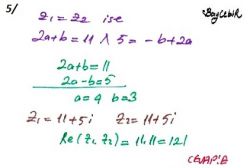 5/
z₁ = z₂ ise
2a+b = 11 ∧ 5 = -b+2a
2a+b = 11
2a-b = 5
a=4 b=3
z₁ = 11+5i z₂ = 11+5i
Re(z₁ z₂) = 11.11 = 121
CEVAP: E